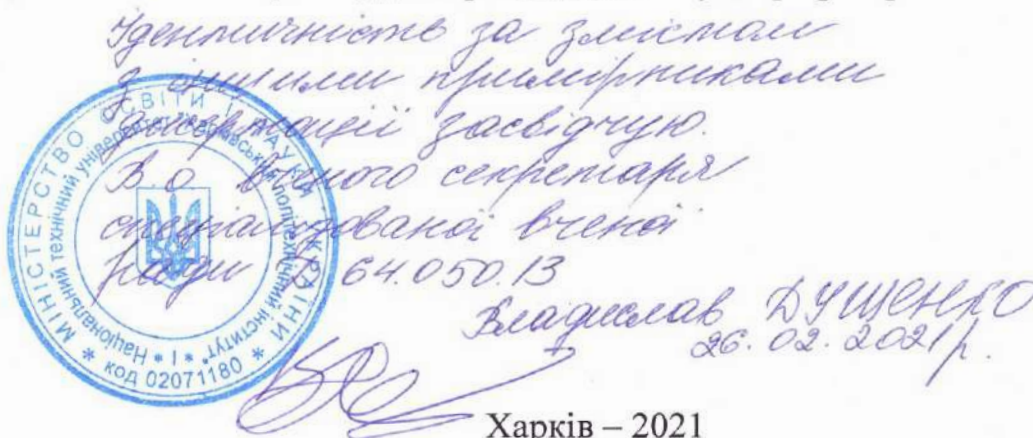 Ідентичність за змістом
з іншими примірниками
дисертації засвідчую.
В.о вченого секретаря
спеціалізованої вченої
ради Д 64.050.13
Владислав ДУЩЕНКО
26.02.2021р.
МІНІСТЕРСТВО ОСВІТИ І НАУКИ УКРАЇНИ
Національний технічний університет "Харківський політехнічний інститут"
* 1 *
* код 02071180 *
Харків – 2021